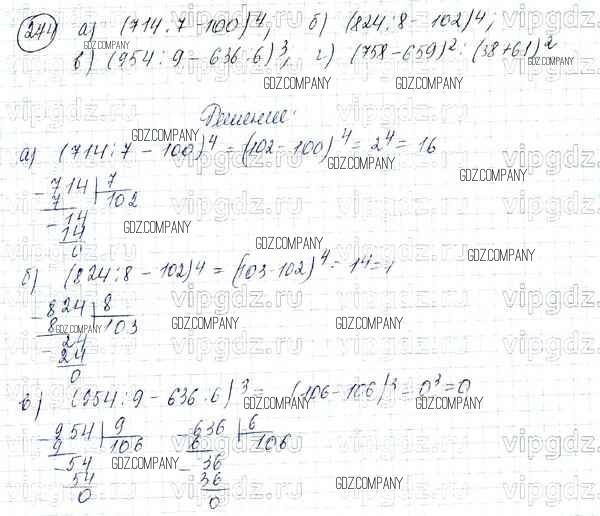 244 а) (714:7-100)⁴, б) (824:8-102)⁴;
в) (954:9-636:6)³, г) (758-659)²:(38+61)²
Решение:
а) (714:7-100)⁴=(102-100)⁴=2⁴=16
-714 7
7 102
-14
14
0
б) (824:8-102)⁴=(103-102)⁴=1⁴=1
-824 8
8 103
-24
24
0
в) (954:9-636:6)³=(106-106)³=0³=0
-954 9 -636 6
9 106 6 106
-54 -36
54 36
0 0
GDZ.COMPANY
vipgdz.ru